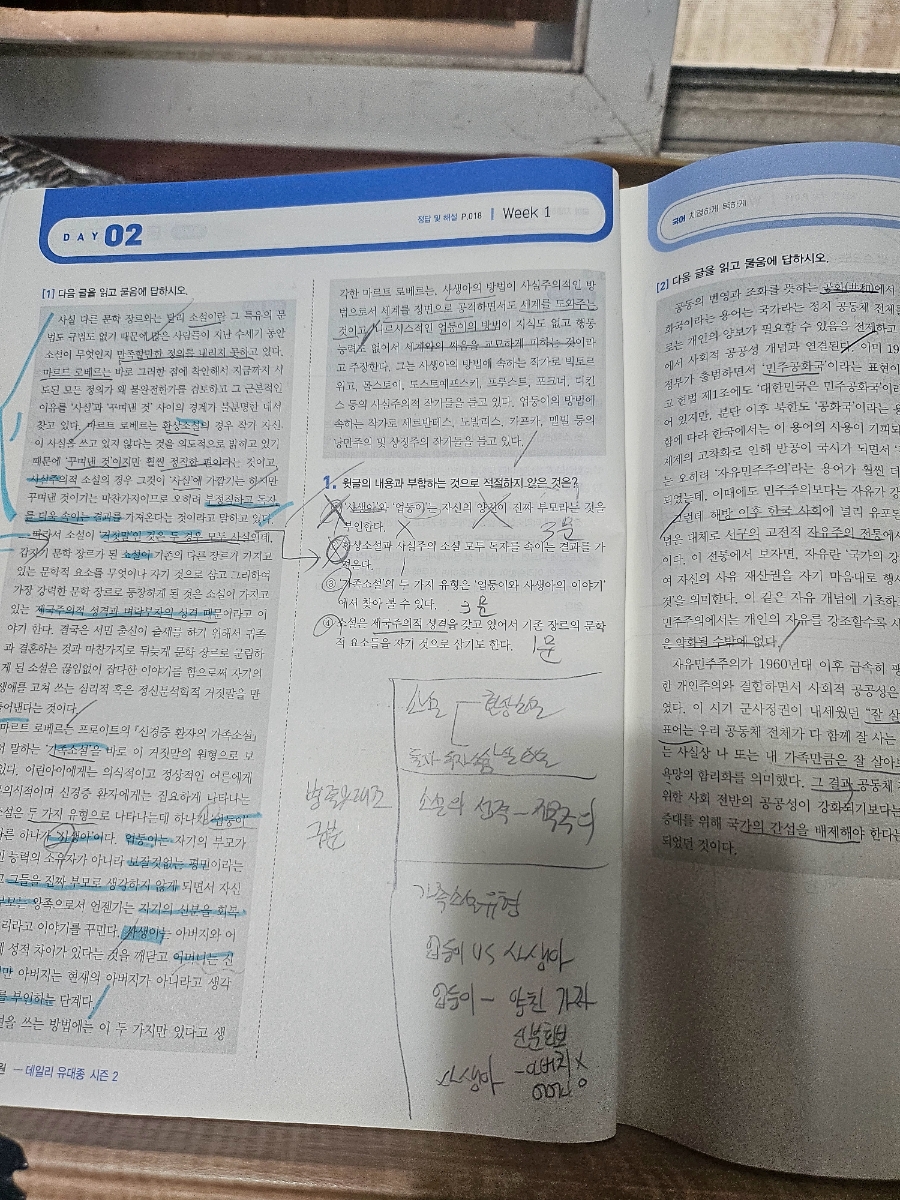 DAY 02
정답 및 해설 P.018 Week 1
[1] 다음 글을 읽고 물음에 답하시오.
사실 다른 문학 장르와는 달리 소설이란 그 특유의 문
법도 규범도 없기 때문에 많은 사람들이 지난 수세기 동안
소설이 무엇인지 만족할만한 정의를 내리지 못하고 있다.
마르트 로베르는 바로 그러한 점에 착안해서 지금까지 시
도된 모든 정의가 왜 불완전한가를 검토하고 그 근본적인
이유를 '사실'과 '꾸며낸 것' 사이의 경계가 불분명한 데서
찾고 있다. 마르트 로베르는 환상소설의 경우 작가 자신
이 사실을 쓰고 있지 않다는 것을 의도적으로 밝히고 있기
때문에 '꾸며낸 것'이지만 훨씬 정직한 편이라는 것이고,
사실주의적 소설의 경우 그것이 '사실'에 가깝기는 하지만
꾸며낸 것이기는 마찬가지이므로 오히려 부정직하고 독자
를 더욱 속이는 결과를 가져온다는 것이라고 말하고 있다.
따라서 소설이 '거짓말'인 것은 두 경우 모두 사실인데,
갑자기 문학 장르가 된 소설이 기존의 다른 장르가 가지고
있는 문학적 요소를 무엇이나 자기 것으로 삼고 그리하여
가장 강력한 문학 장르로 등장하게 된 것은 소설이 가지고
있는 제국주의적 성격과 벼락부자의 성격 때문이라고 이
야기 한다. 결국은 서민 출신이 출세를 하기 위해서 귀족
과 결혼하는 것과 마찬가지로 뒤늦게 문학 장르로 군림하
게 된 소설은 끊임없이 잡다한 이야기를 함으로써 자기의
생애를 고쳐 쓰는 심리적 혹은 정신분석학적 거짓말을 만
들어낸다는 것이다.
마르트 로베르는 프로이트의 『신경증 환자의 가족소설』
서 말하는 '가족소설'을 바로 이 거짓말의 원형으로 보
있다. 어린아이에게는 의식적이고 정상적인 어른에게
무의식적이며 신경증 환자에게는 집요하게 나타나는
소설은 두 가지 유형으로 나타나는데 하나가 '업둥이'
다른 하나가 '사생아'이다. 업둥이는 자기의 부모가
인 능력의 소유자가 아니라 보잘것없는 평민이라는
고 그들을 진짜 부모로 생각하지 않게 되면서 자신
부모는 왕족으로서 언젠가는 자기의 신분을 회복
리라고 이야기를 꾸민다. 사생아는 아버지와 어
에 성적 차이가 있다는 것을 깨닫고 어머니는 진
지만 아버지는 현재의 아버지가 아니라고 생각
를 부인하는 단계다.
설을 쓰는 방법에는 이 두 가지만 있다고 생
원 — 데일리 유대종 시즌 2
각한 마르트 로베르는, 사생아의 방법이 사실주의적인 방
법으로서 세계를 정면으로 공격하면서도 세계를 도와주는
것이고 나르시스적인 업둥이의 방법이 지식도 없고 행동
능력도 없어서 세계와의 싸움을 교묘하게 피하는 것이라
고 주장한다. 그는 사생아의 방법에 속하는 작가로 빅토르
위고, 톨스토이, 도스토예프스키, 프루스트, 포크너, 디킨
스 등의 사실주의적 작가들을 들고 있다. 업둥이의 방법에
속하는 작가로 세르반테스, 노발리스, 카프카, 멜빌 등의
낭만주의 및 상징주의 작가들을 들고 있다.
1. 윗글의 내용과 부합하는 것으로 적절하지 않은 것은?
① '사생아'와 '업둥이'는 자신의 양친이 진짜 부모라는 것을
부인한다.
3문
② 환상소설과 사실주의 소설 모두 독자를 속이는 결과를 가
져온다.
③ '가족소설'의 두 가지 유형은 '업둥이와 사생아의 이야기'
에서 찾아 볼 수 있다.
3문
④ 소설은 제국주의적 성격을 갖고 있어서 기존 장르의 문학
적 요소들을 자기 것으로 삼기도 한다.
1문
소설 환상소설
소설의 성격 - 제국주의
가족소설유형
업둥이 VS 사생아
업둥이 - 양친 가짜
신분회복
사생아 - 아버지 X
어머니 O
국어 치열하게 독하게
[2] 다음 글을 읽고 물음에 답하시오.
공동의 번영과 조화를 뜻하는 공화(共和)에서
화국이라는 용어는 국가라는 정치 공동체 전체
로는 개인의 양보가 필요할 수 있음을 전제하고
에서 사회적 공공성 개념과 연결된다. 이미 19
정부가 출범하면서 '민주공화국'이라는 표현이
고 헌법 제1조에도 '대한민국은 민주공화국'이라
어 있지만, 분단 이후 북한도 '공화국'이라는 용
함에 따라 한국에서는 이 용어의 사용이 기피되
체제의 고착화로 인해 반공이 국시가 되면서 '
는 오히려 '자유민주주의'라는 용어가 훨씬 더
되었는데, 이때에도 민주주의보다는 자유가 강
그런데 해방 이후 한국 사회에 널리 유포된
면은 대체로 서구의 고전적 자유주의 전통에서
이다. 이 전통에서 보자면, 자유란 '국가의 강
여 자신의 사유 재산권을 자기 마음대로 행사
것'을 의미한다. 이 같은 자유 개념에 기초하
민주주의에서는 개인의 자유를 강조할수록 사
은 약화될 수밖에 없다.
자유민주주의가 1960년대 이후 급속히 팽
한 개인주의와 결합하면서 사회적 공공성은
였다. 이 시기 군사정권이 내세웠던 "잘 살
표어는 우리 공동체 전체가 다 함께 잘 사는
는 사실상 나 또는 내 가족만큼은 잘 살아보
욕망의 합리화를 의미했다. 그 결과 공동체
위한 사회 전반의 공공성이 강화되기보다는
증대를 위해 국가의 간섭을 배제해야 한다는
되었던 것이다.